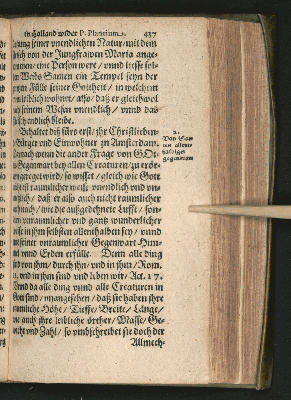 in Holland wider P. Plancium. 437
igung seiner vnendlichen Natur/ mit dem
isch von der Jungfrawen Maria ange-
ommen/ eine Person were/ vnnd diese sol-
n Weibs Samen ein Tempel seyn der
tzen Fülle seiner Gottheit/ in welchem
leiblich wohnet/ also/ daß er gleichwol
seinem Wesen vnendlich/ vnnd das
schendlich bleibe.
Behaltet diß fürs erst/ ihr Christlichen
Bürger vnd Einwohner zu Amsterdam.
Darnach wenn die ander Frage von GOt-
Gegenwart bey allen Creaturen/ zu erör-
angereget wird/ so wisset/ gleich wie Gott
ist raumlicher weiß/ vnendlich vnd vn-
/ daß er also auch nicht raumlicher
/ wie die außgedehnete Lufft/ son-
vnraumlicher vnd gantz wunderlicher
in ihm selbsten allenthalben sey/ vnnd
seiner vnraumlicher Gegenwart Him-
vnnd Erden erfülle. Denn alle ding
von ihm/ durch ihn/ vnd in ihm/ Rom.
vnd in ihm sind vnd leben wir/ Act. 17.
Vnd da alle ding vnnd alle Creaturen in
Gott sind/ vnangesehen/ daß sie haben ihre
raumliche Höhe/ Tieffe/ Breite/ Länge/
auch ihre leibliche örther/ Masse/ Ge-
wicht vnd Zahl/ so vmbschreibet sie doch der
Allmech-
2.
Von Got-
tes allent-
halbiger
gegenwart